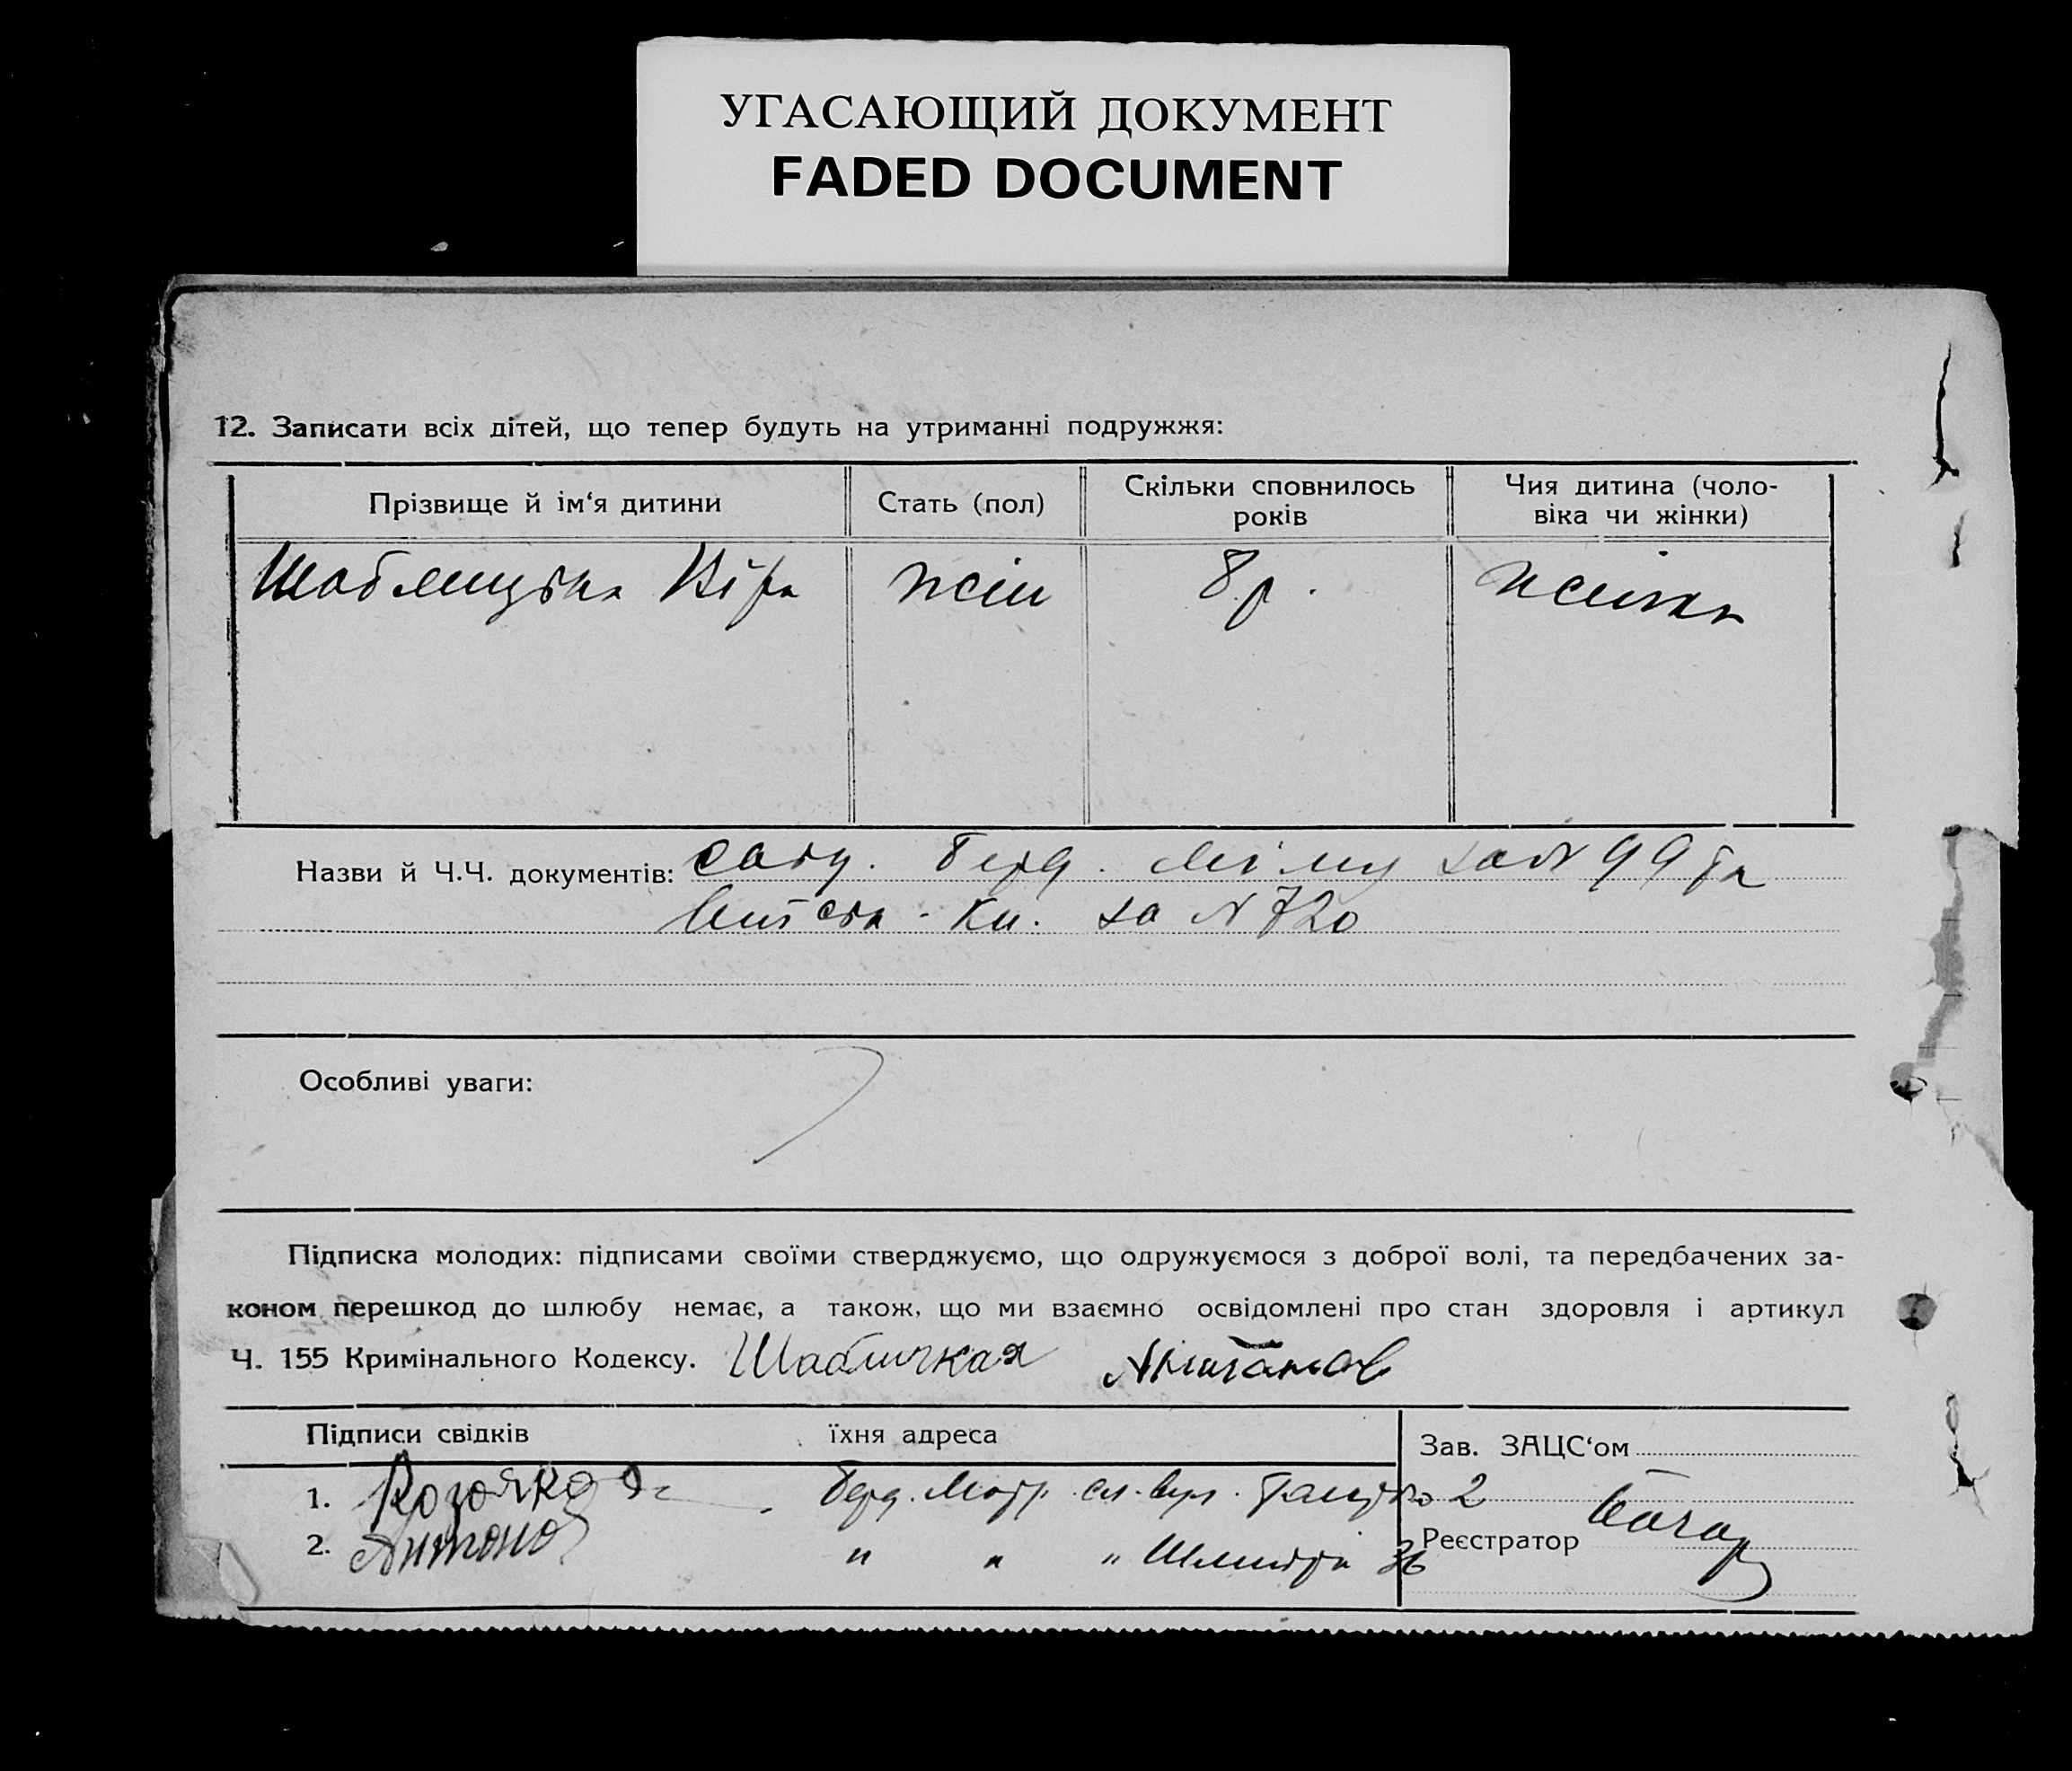 УГАСАЮЩИЙ ДОКУМЕНТ
FADED DOCUMENT
12. Записати всіх дітей, що тепер будуть на утриманні подружжя:
Прізвище й ім‘я дитини Стать (пол) Скільки сповнилось років Чия дитина (чоло-віка чи жінки)
Шаблицька Віра жін 8 р. жінки
Назви й Ч.Ч. документів: Берд. за № 99 та
за № 720
Особливі уваги:
Підписка молодих: підписами своїми стверджуємо, що одружуємося з доброї волі, та передбачених за-
коном перешкод до шлюбу немає, а також, що ми взаємно освідомлені про стан здоровля і артикул
Ч. 155 Кримінального Кодексу. Шабличкая
Підписи свідків їхня адреса Зав. ЗАЦС‘ом
1. Берд. вул. 2
2. Антонов " " " Шмидта 36 Реєстратор